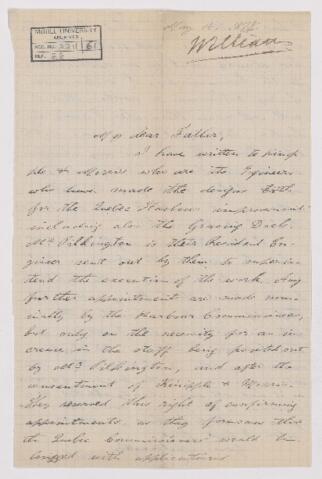 McGILL UNIVERSITY
ARCHIVES
ACC. NO.
REF.
May
William
My dear Father,
I have written to Kinip-
ple & Morris who are the Engineers
who have made the designs both
for the Quebec Harbour improvement
including also the Graving Dock.
Mr Pilkington is their Resident En-
gineer sent out by them to superin-
tend the execution of the work. Any
further appointments are made nom-
inally by the Harbour Commissioners,
but only on the necessity for an in-
crease in the staff being pointed out
by Mr Pilkington, and after the
consentment of Kinipple & Morris.
They reserved this right of confirming
appointments, as they foresaw that
the Quebec Commissioners would be
besieged with applications